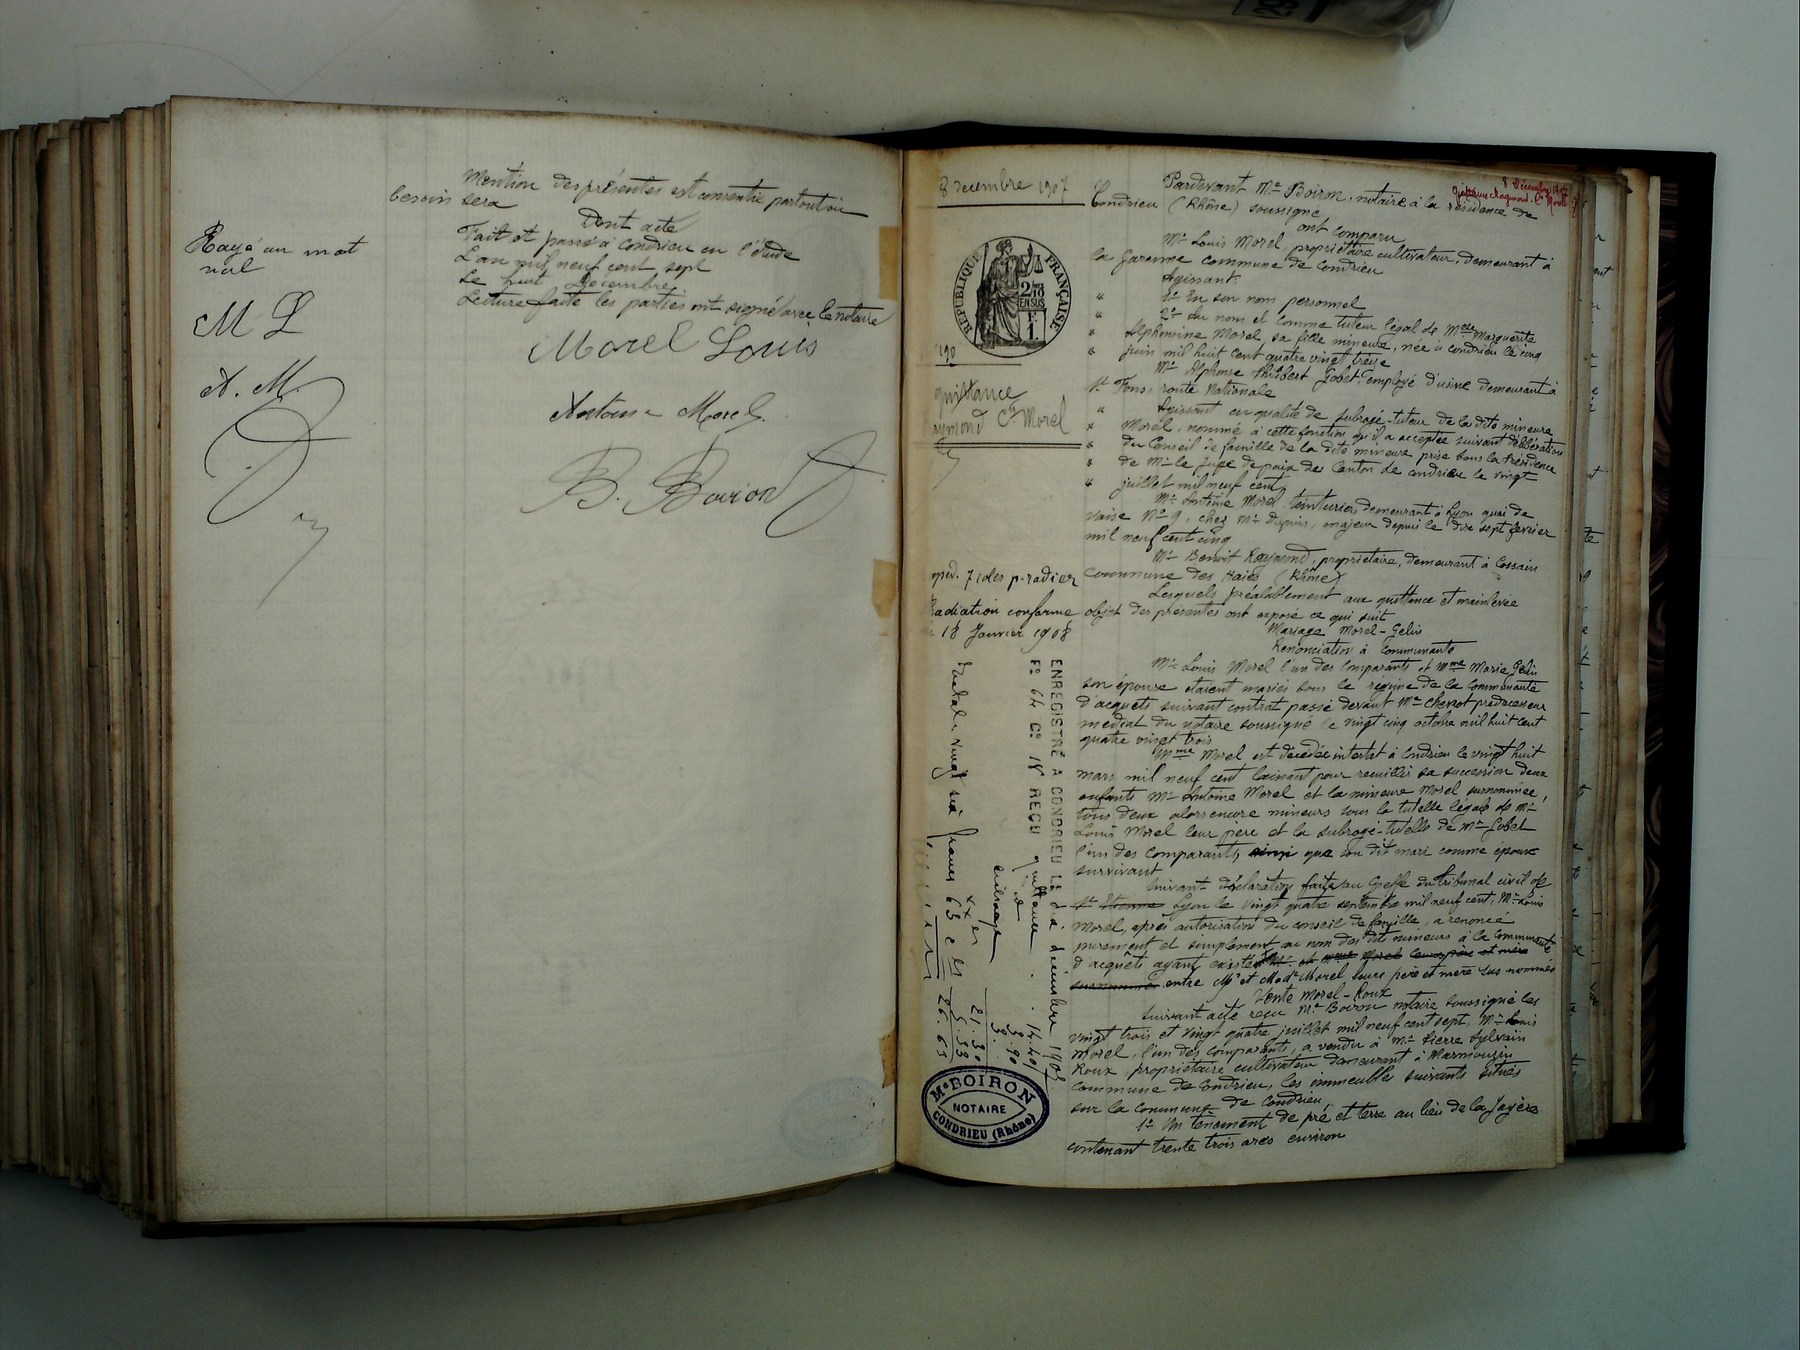 Mention des présentes est consentie partout où
besoin sera
Dont acte
Fait et passé à Condrieu en l'étude
L'an mil neuf cent sept
Le huit Décembre
Lecture faite les parties ont signé avec le notaire
Rayé un mot
nul
M L
A. M.
Morel Louis
Antoine Morel
B. Boiron
8 décembre 1907
RÉPUBLIQUE FRANÇAISE
quittance
Raymond Ct Morel
exped. 7 roles p. radier
Radiation conforme
18 Janvier 1908
ENREGISTRÉ A CONDRIEU LE dix décembre 1907
F° 64 C° 18 REÇU quittance 14.40
Total vingt six francs 63 c
21.30
5.33
26.63
Me BOIRON
NOTAIRE
CONDRIEU (Rhône)
8 Décembre 1907
Quittance Raymond Ct Morel
Pardevant Me Boiron, notaire à la résidence de
Condrieu (Rhône) soussigné
ont comparu
Mr Louis Morel, propriétaire cultivateur, demeurant à
la Garenne commune de Condrieu
Agissant:
" 1° En son nom personnel
" 2° Au nom et comme tuteur légal de Melle Marguerite
" Alphonsine Morel, sa fille mineure, née à Condrieu le cinq
" juin mil huit cent quatre vingt treize
Mr Alphonse Philibert Gobet employé d'usine demeurant à
St Fons, route Nationale
" Agissant en qualité de subrogé-tuteur de la dite mineure
" Morel, nommé à cette fonction qu'il a acceptée suivant délibération
" du Conseil de famille de la dite mineure prise sous la Présidence
" de Mr le Juge de paix du Canton de Condrieu le vingt
" juillet mil neuf cent
Mr Antoine Morel teinturier, demeurant à Lyon quai de
Vaise No 9, chez Mr Dupuis, majeur depuis le dix sept février
mil neuf cent cinq
Mr Benoit Raymond, propriétaire, demeurant à Cossain
commune des Haies (Rhône)
Lesquels préalablement aux quittance et mainlevée
objet des présentes ont exposé ce qui suit
Mariage Morel-Gelin
Renonciation à Communauté
Mr Louis Morel l'un des comparants et Mme Marie Gelin
son épouse étaient mariés sous le régime de la Communauté
d'acquets suivant contrat passé devant Me Chevrot prédécesseur
médiat du notaire soussigné le vingt cinq octobre mil huit cent
quatre vingt trois
Mme Morel est décédée intestat à Condrieu le vingt huit
mars mil neuf cent laissant pour recueillir sa succession deux
enfants Mr Antoine Morel et la mineure Morel surnommée,
tous deux alors encore mineurs sous la tutelle légale de Mr
Louis Morel leur père et la subrogé-tutelle de Mr Gobet
l'un des comparants, ainsi que son dit mari comme époux
survivant
Suivant déclaration faite au Greffe du tribunal civil de
St Etienne Lyon le vingt quatre septembre mil neuf cent, Mr Louis
Morel, après autorisation du conseil de famille, a renoncé
purement et simplement au nom des dits mineurs à la Communauté
d'acquêts ayant existé Mr et Mme Morel leurs père et mère
surnommés entre Mr et Made Morel leurs père et mère sus nommés
Vente Morel-Roux
Suivant acte reçu Me Boiron notaire soussigné les
vingt trois et vingt quatre juillet mil neuf cent sept, Mr Louis
Morel, l'un des comparants, a vendu à Mr Pierre Sylvain
Roux, propriétaire cultivateur demeurant à Marmouzin
commune de Condrieu, les immeubles suivants situés
sur la commune de Condrieu,
1° Un tenement de pré et terre au lieu de la Jayère
contenant trente trois ares environ